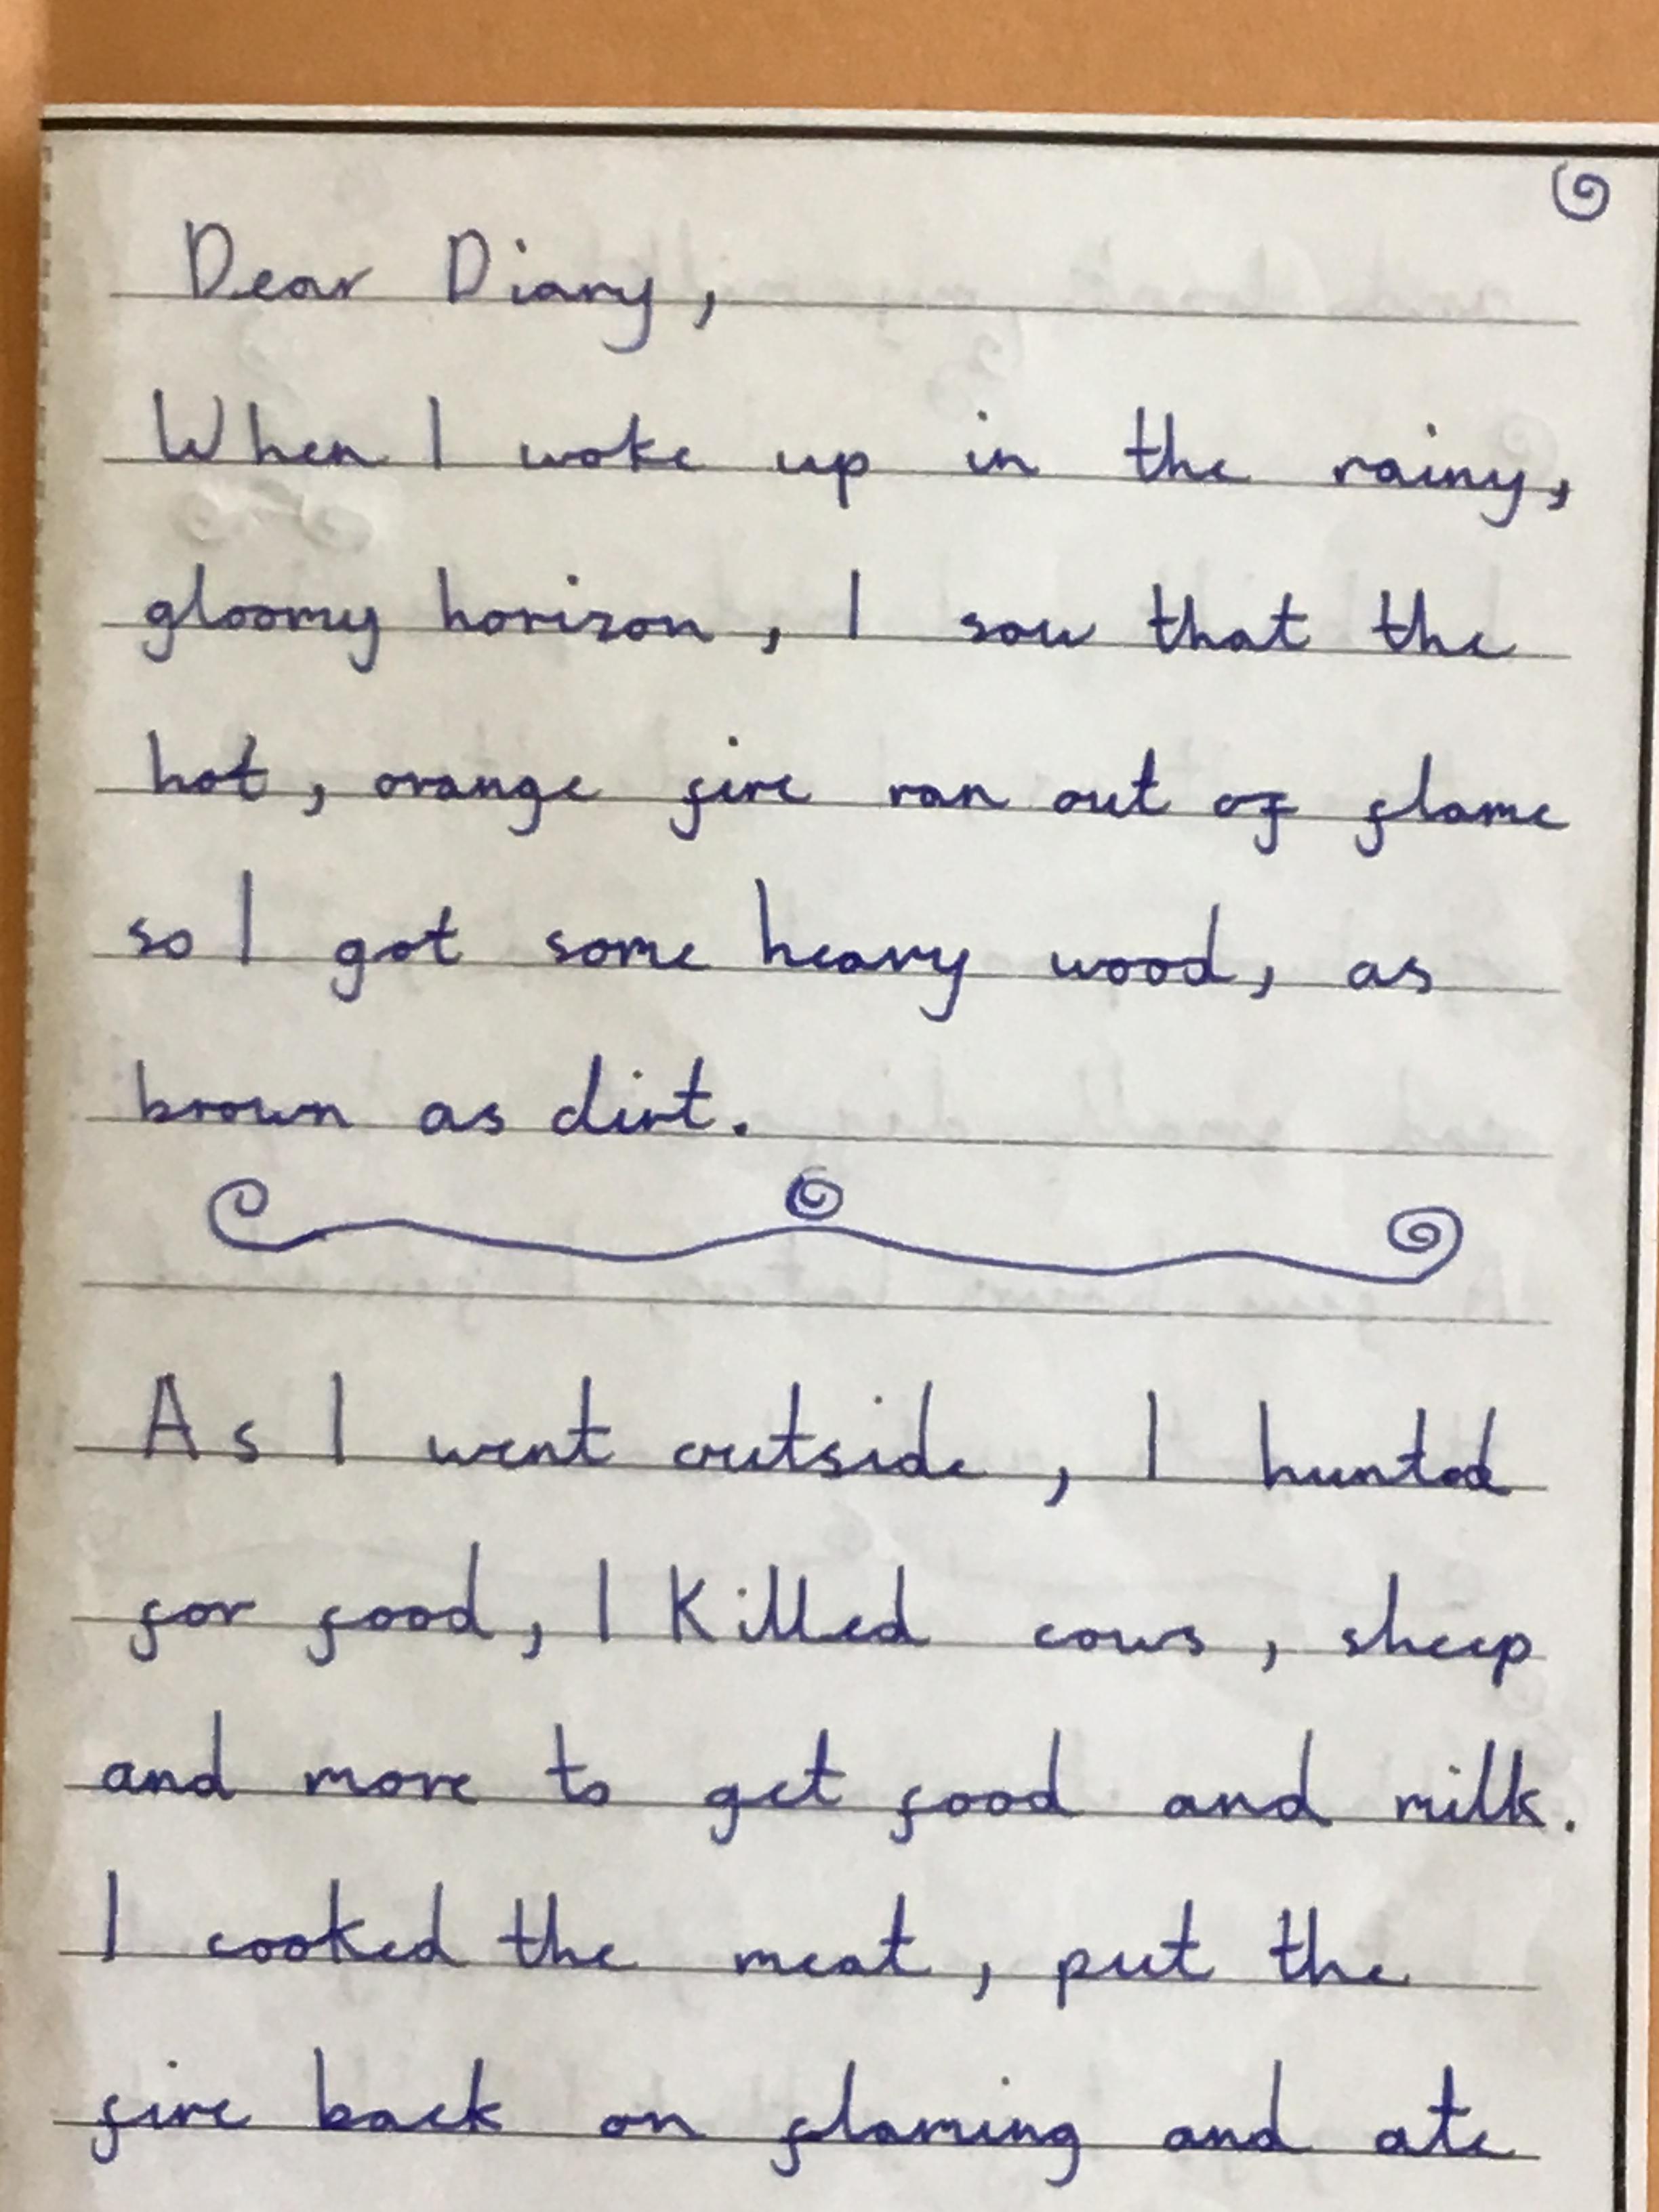 Dear Diary,
When I woke up in the rainy,
gloomy horizon, I saw that the
hot, orange fire ran out of flame
so I got some heavy wood, as
brown as dirt.
As I went outside, I hunted
for food, I Killed cows, sheep
and more to get food and milk.
I cooked the meat, put the
fire back on flaming and ate